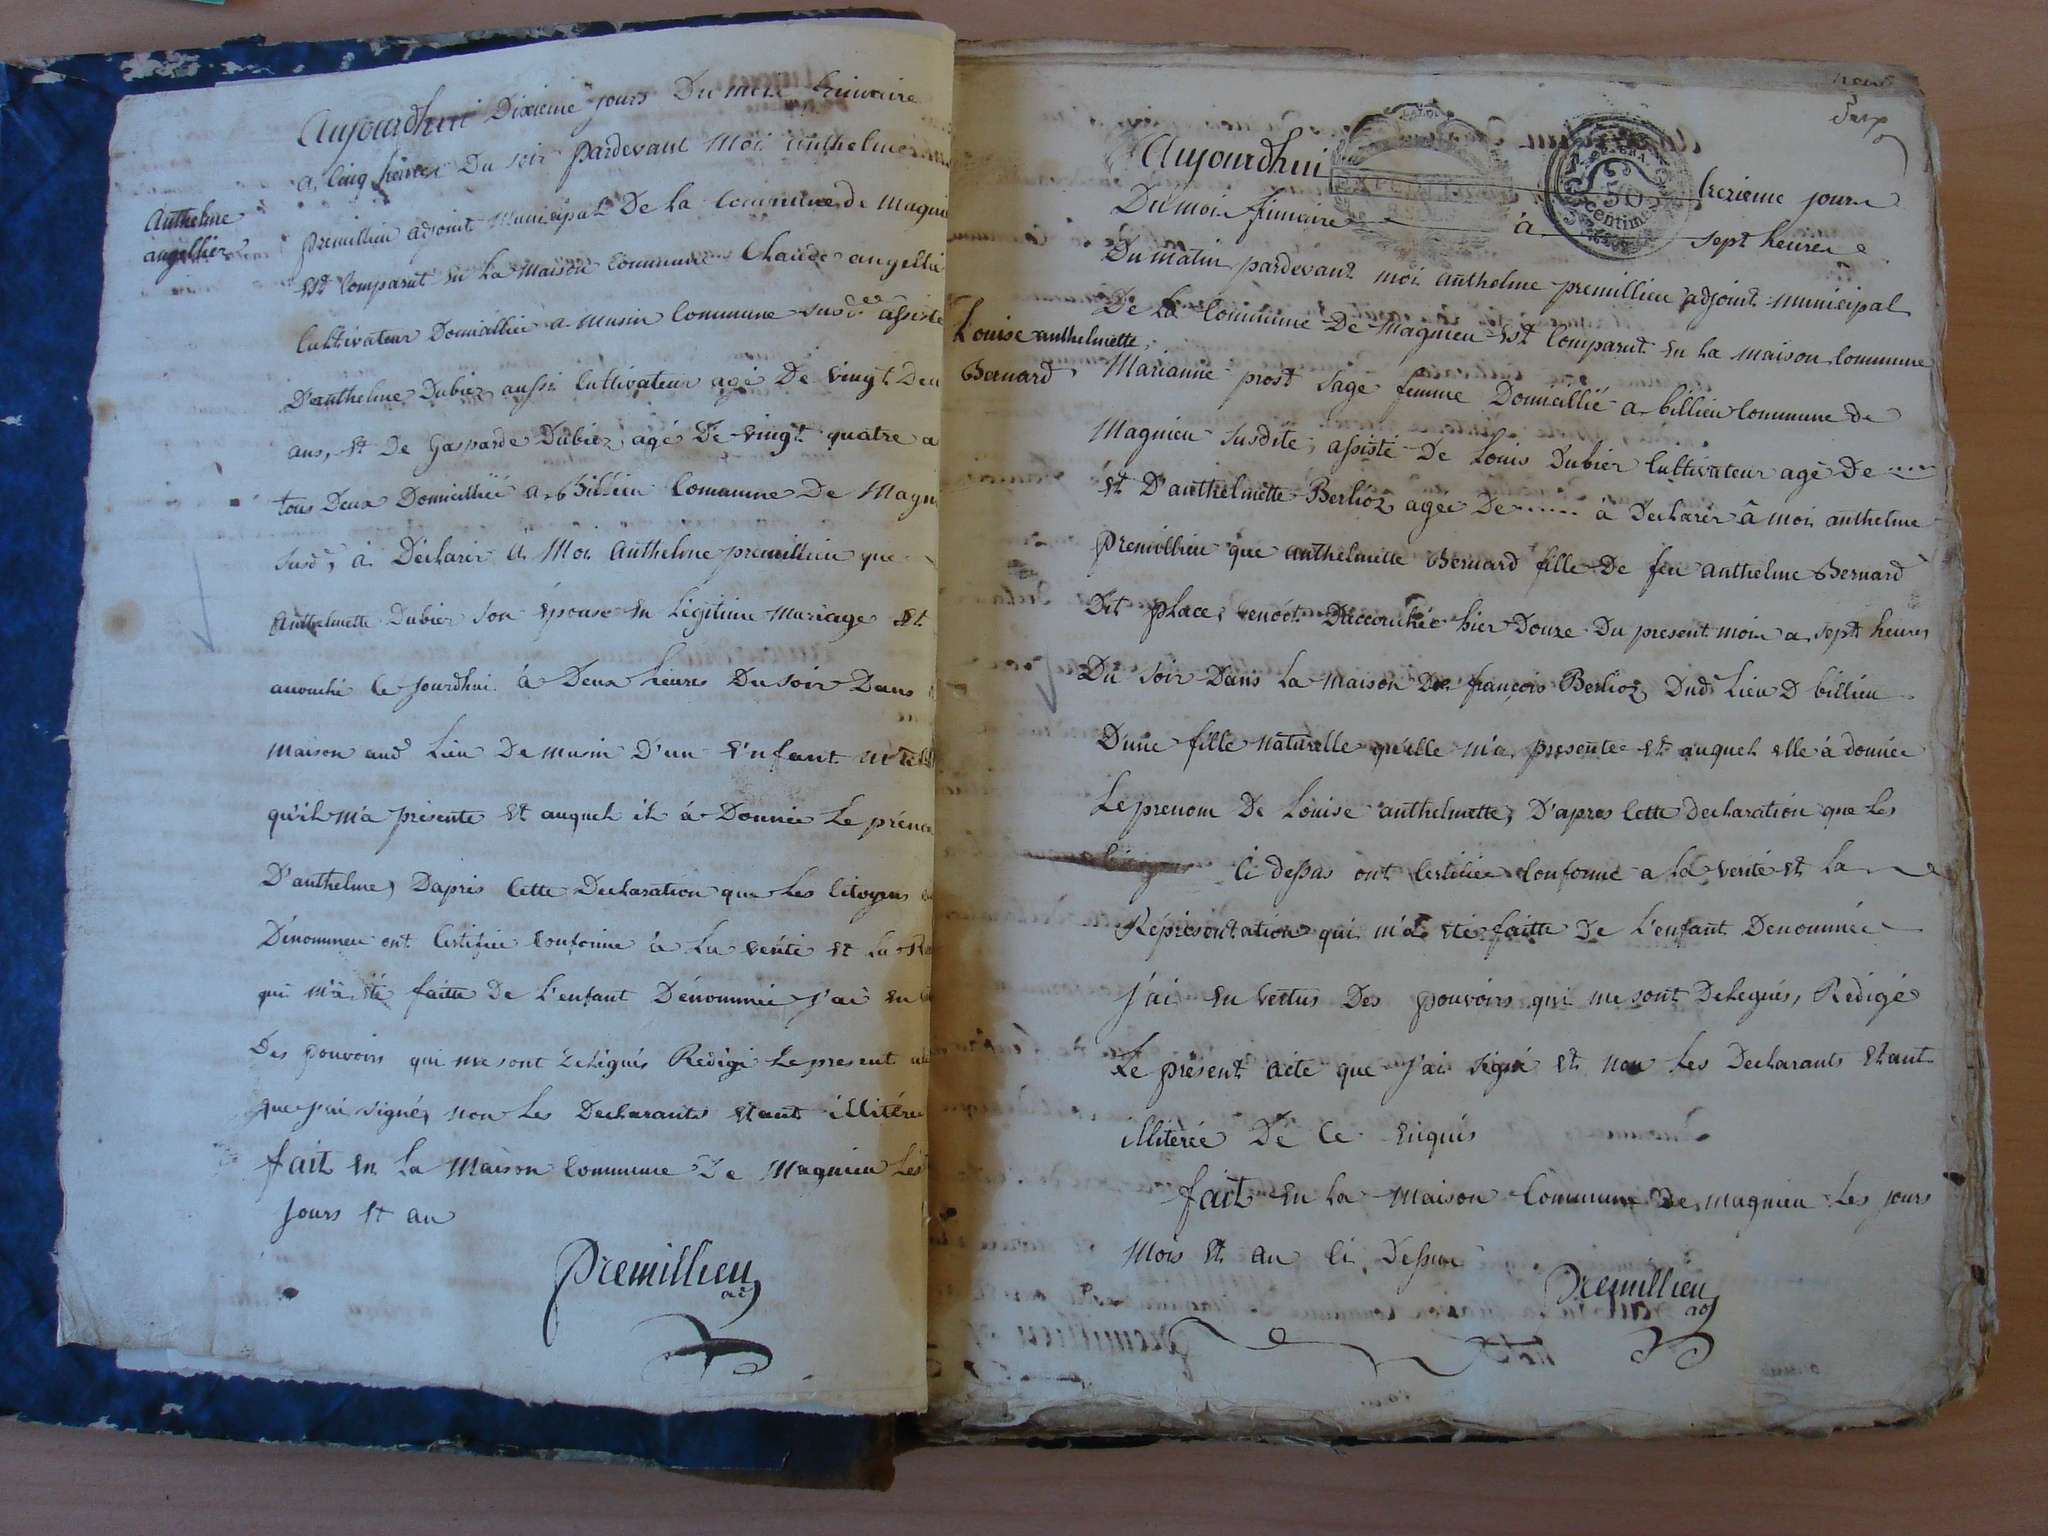 Anthelme
angellier
Aujourdhui Dixieme jours Du mois frimaire
a Cinq heures Du soir pardevant Moi anthelme
premillieu adjoint Municipal De la Commune de Magni
est Comparut en la maison Commune Claude angelli
Cultivateur Domicillié a musin Commune susd. assisté
D'antheline Dubiez aussi Cultivateur agé De vingt Deu
ans, et De Gasparde Dubiez agé De vingt quatre a
tous Deux Domicillié a Billieu Comunne De Magni
susd. à Déclarer à Moi Anthelme premillieu que
Anthelmette Dubier son épouse en Légitime mariage est
accouché le jourdhui à Deux heures Du soir Dans
maison aud. Lieu De musin D'un enfant
qu'il m'a présenté et auquel il à Donnée Le préno
D'anthelme, Dapris Cette Declaration que Les Citoyens
Dénommeu ont Certifiée conforme à La vérité et La Re
qui m'a été faitte De L'enfant Dénommée j'ai en
Des pouvoirs qui me sont Délégués Redigé Le present
que j'ai signé, non Les Declarants etant illitéré
fait en La Maison Commune De Magnieu Les
Jours et an
Premillieu
adj
Louise anthelmette
Bernard
50
Centimes
Aujourdhui treizieme jour
Du mois frimaire à sept heures
Du matin pardevant moi anthelme premillieu adjoint municipal
De La Commune De Magnieu est Comparut en la maison Commune
Marianne prost Sage femme Domicillié a billieu Commune de
Magnieu susdite, assisté De Louis Dubier Cultivateur agé De ....
et D'anthelmette Berlioz agée De ...... à Declarer à moi anthelme
Premillieu que anthelmette Bernard fille De feu anthelme Bernard
Dit place, D'accouchée hier Douze Du present mois a sept heures
Du soir Dans La maison De françois Berlioz Dud. Lieu D billieu
D'une fille naturelle qu'elle m'a presentée et auquel elle à donnée
Le prenom De Louise anthelmette, D'apres Cette declaration que Les
Ci dessus ont Certifiée Conforme a La verité et La
Répresentation qui m'a été faitte De L'enfant Denommée
J'ai en vertus Des pouvoirs qui me sont Delegués, Rédigé
Le présent acte que j'ai signé et non Les Declarants etant
illiterée De Ce enquis
fait en La Maison Commune De magnieu Les jours
Mois et an Ci Dessus
Premillieu
adj